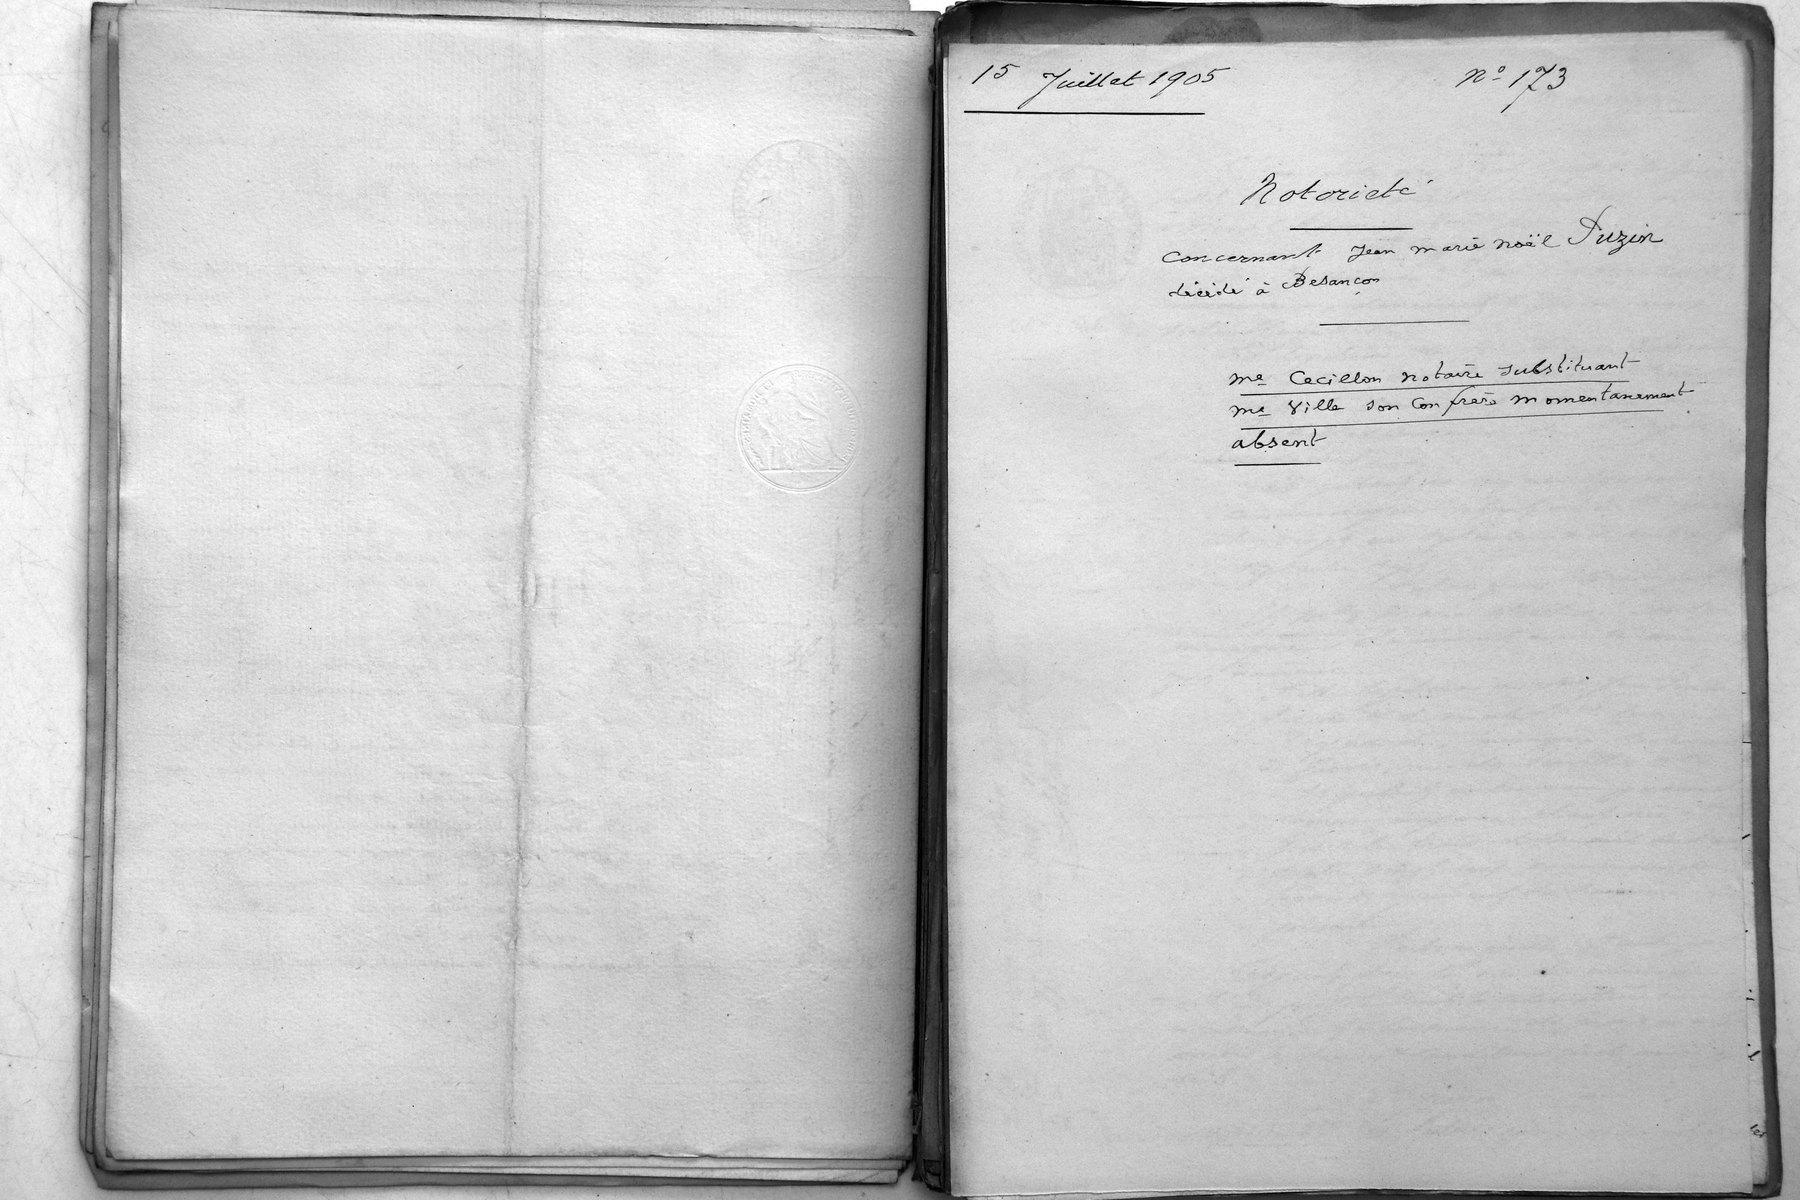 15 Juillet 1905
No 173
Notorieté
concernant Jean marie noël Puzin
décédé à Besançon
Me Cecillon notaire substituant
Me Ville son confrère momentanement
absent